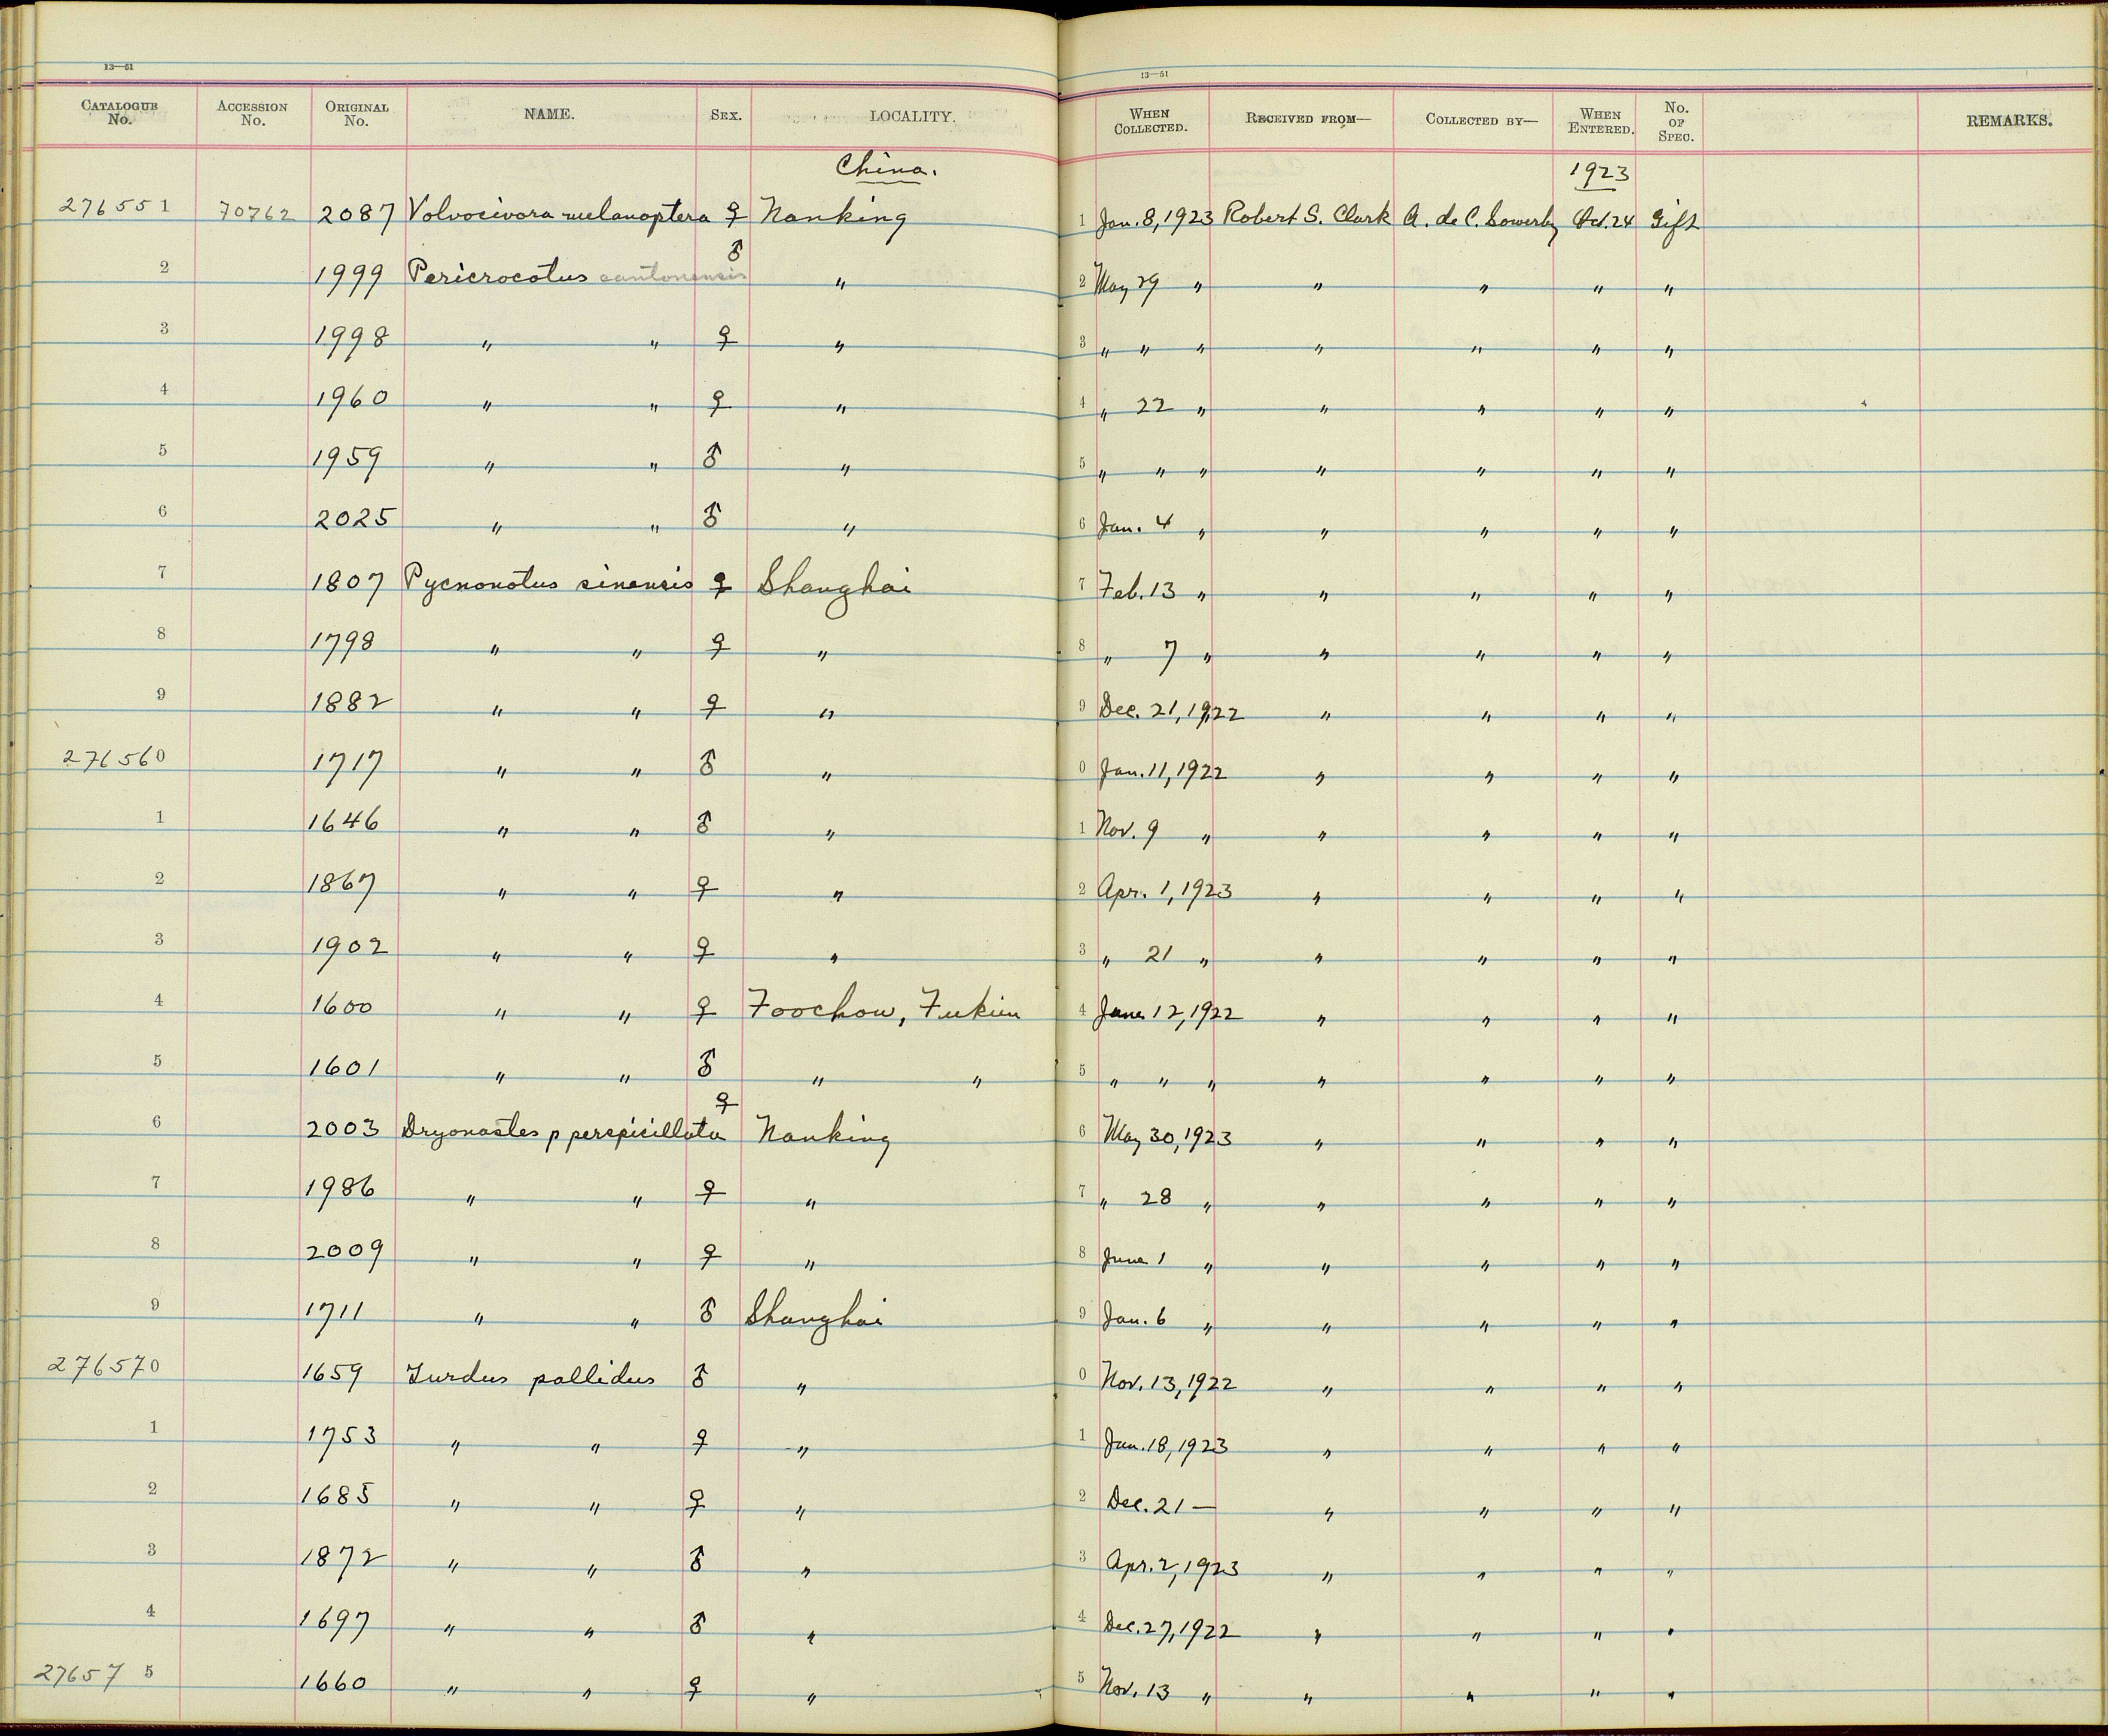 13—51 13—51
CATALOGUE No. ACCESSION No. ORIGINAL No. NAME. SEX. LOCALITY. WHEN COLLECTED. RECEIVED FROM— COLLECTED BY— WHEN ENTERED. No. OF SPEC. REMARKS.
China. 1923
276551 70762 2087 Volvocivora melanoptera ♀ Nanking 1 Jan. 8, 1923 Robert S. Clark A. de C. Sowerby Oct. 24 Gift
2 1999 Pericrocotus cantonensis ♂ " 2 May 29 " " " " "
3 1998 " " ♀ " 3 " " " " " " "
4 1960 " " ♀ " 4 " 22 " " " " "
5 1959 " " ♂ " 5 " " " " " " "
6 2025 " " ♂ " 6 Jan. 4 " " " " "
7 1807 Pycnonotus sinensis ♀ Shanghai 7 Feb. 13 " " " " "
8 1798 " " ♀ " 8 " 7 " " " " "
9 1882 " " ♀ " 9 Dec. 21, 1922 " " " "
276560 1717 " " ♂ " 0 Jan. 11, 1922 " " " "
1 1646 " " ♂ " 1 Nov. 9 " " " " "
2 1867 " " ♀ " 2 Apr. 1, 1923 " " " "
3 1902 " " ♀ " 3 " 21 " " " " "
4 1600 " " ♀ Foochow, Fukien 4 June 12, 1922 " " " "
5 1601 " " ♂ " " 5 " " " " " " "
6 2003 Dryonastes p perspicillata ♀ Nanking 6 May 30, 1923 " " " "
7 1986 " " ♀ " 7 " 28 " " " " "
8 2009 " " ♀ " 8 June 1 " " " " "
9 1711 " " ♂ Shanghai 9 Jan. 6 " " " " "
276570 1659 Turdus pallidus ♂ " 0 Nov. 13, 1922 " " " "
1 1753 " " ♀ " 1 Jan. 18, 1923 " " " "
2 1685 " " ♀ " 2 Dec. 21 — " " " "
3 1872 " " ♂ " 3 Apr. 2, 1923 " " " "
4 1697 " " ♂ " 4 Dec. 27, 1922 " " " "
276575 1660 " " ♀ " 5 Nov. 13 " " " " "